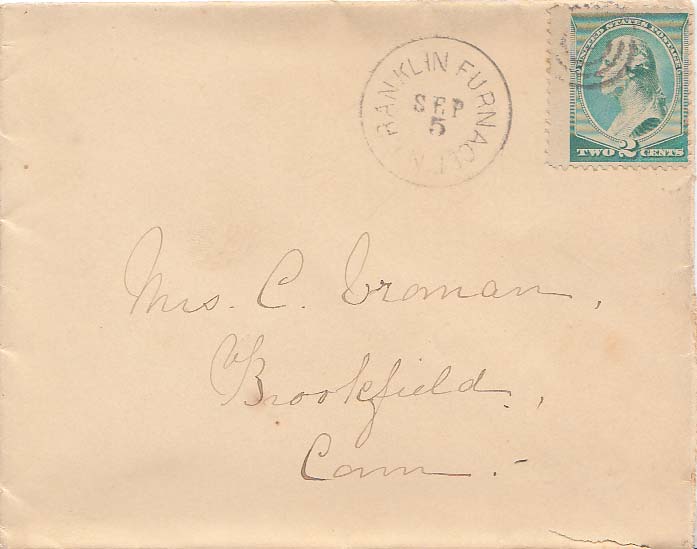 FRANKLIN FURNACE N.J.
SEP
5
UNITED STATES POSTAGE
TWO 2 CENTS
Mrs. C. Vroman,
Brookfield,
Conn.